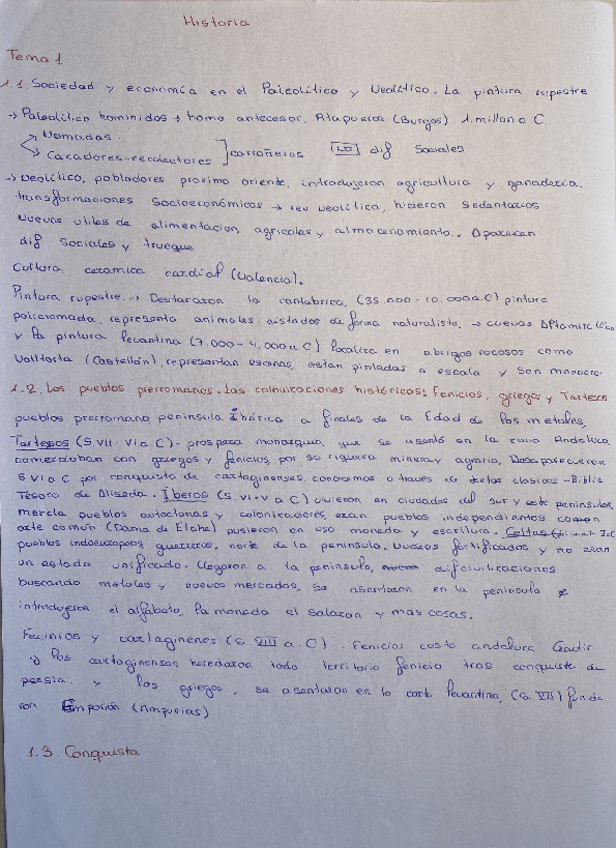 Historia
Tema 1
1.1. Sociedad y economía en el Paleolítico y Neolítico. La pintura rupestre
→ Paleolítico hominidos → homo antecesor, Atapuerca (Burgos) 1. millon a C
Nomadas.
Cazadores-recolectores ] carroñeros dif Sociales
→ Neolítico, pobladores proximo oriente, introdujeron agricultura y ganaderia.
transformaciones Socioeconómicos → rev neolítica, hicieron Sedentarios
Nuevos utiles de alimentacion, agricolas y almacenamiento. Aparecen
dif Sociales y trueque
Cultura ceramica cardial (Valencia).
Pintura rupestre. → Destacaron la cantabrica, (35.000-10.000a.C) pintura
policromada, representa animales aislados de forma naturalista, → cuevas Altamira
y la pintura levantina (7.000-4.000a.C) localiza en abrigos rocosos como
Valltorta (Castellón), representan escenas, estan pintadas a escala y son monocro-
1.2. Los pueblos prerromanos. Las colonizaciones históricas: Fenicios, griegos y Tartesos
pueblos prerromano, peninsula Ibérica a finales de la Edad de los metales,
Tartesos (S.VII-VI a C)- prospera monarquia, que se asentó en la zona Andaluza,
comerciaban con griegos y fenicios, por su riqueza minera y agraria, Desaparecieron
S VI a C por conquista de cartaginenses, conocemos a traves de textos clasicos - Biblia
Tesoro de Aliseda. Iberos (S. VI-V a C) vivieron en ciudades del sur y este peninsular,
mezcla pueblos autoctonos y colonizadores, eran pueblos independientes con un
arte común (Dama de Elche) pusieron en uso moneda y escritura. Celtas
pueblos indoeuropeos guerreros, norte de la peninsula. Nucleos fortificados y no eran
un estado unificado. Llegaron a la peninsula, dif civilizaciones
buscando metales y nuevos mercados, se asentaron en la peninsula e
introdujeron el alfabeto, la moneda el salazon y mas cosas.
Fecinios y cartaginenes (S. VIII a. C). Fenicios costa andaluza Gadir
y los cartaginenses heredaron todo territorio fenicio tras conquista de
persia. y los griegos. se asentaron en la cost levantina, (S. VII) funda
ron Emporion (Ampurias)
1.3. Conquista